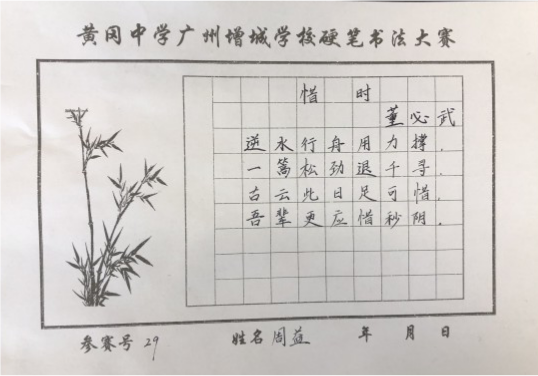 黄冈中学广州增城学校硬笔书法大赛
惜时
董必武
逆水行舟用力撑，
一篙松劲退千寻。
古云此日足可惜，
吾辈更应惜秒阴。
参赛号 29 姓名 周益 年 月 日